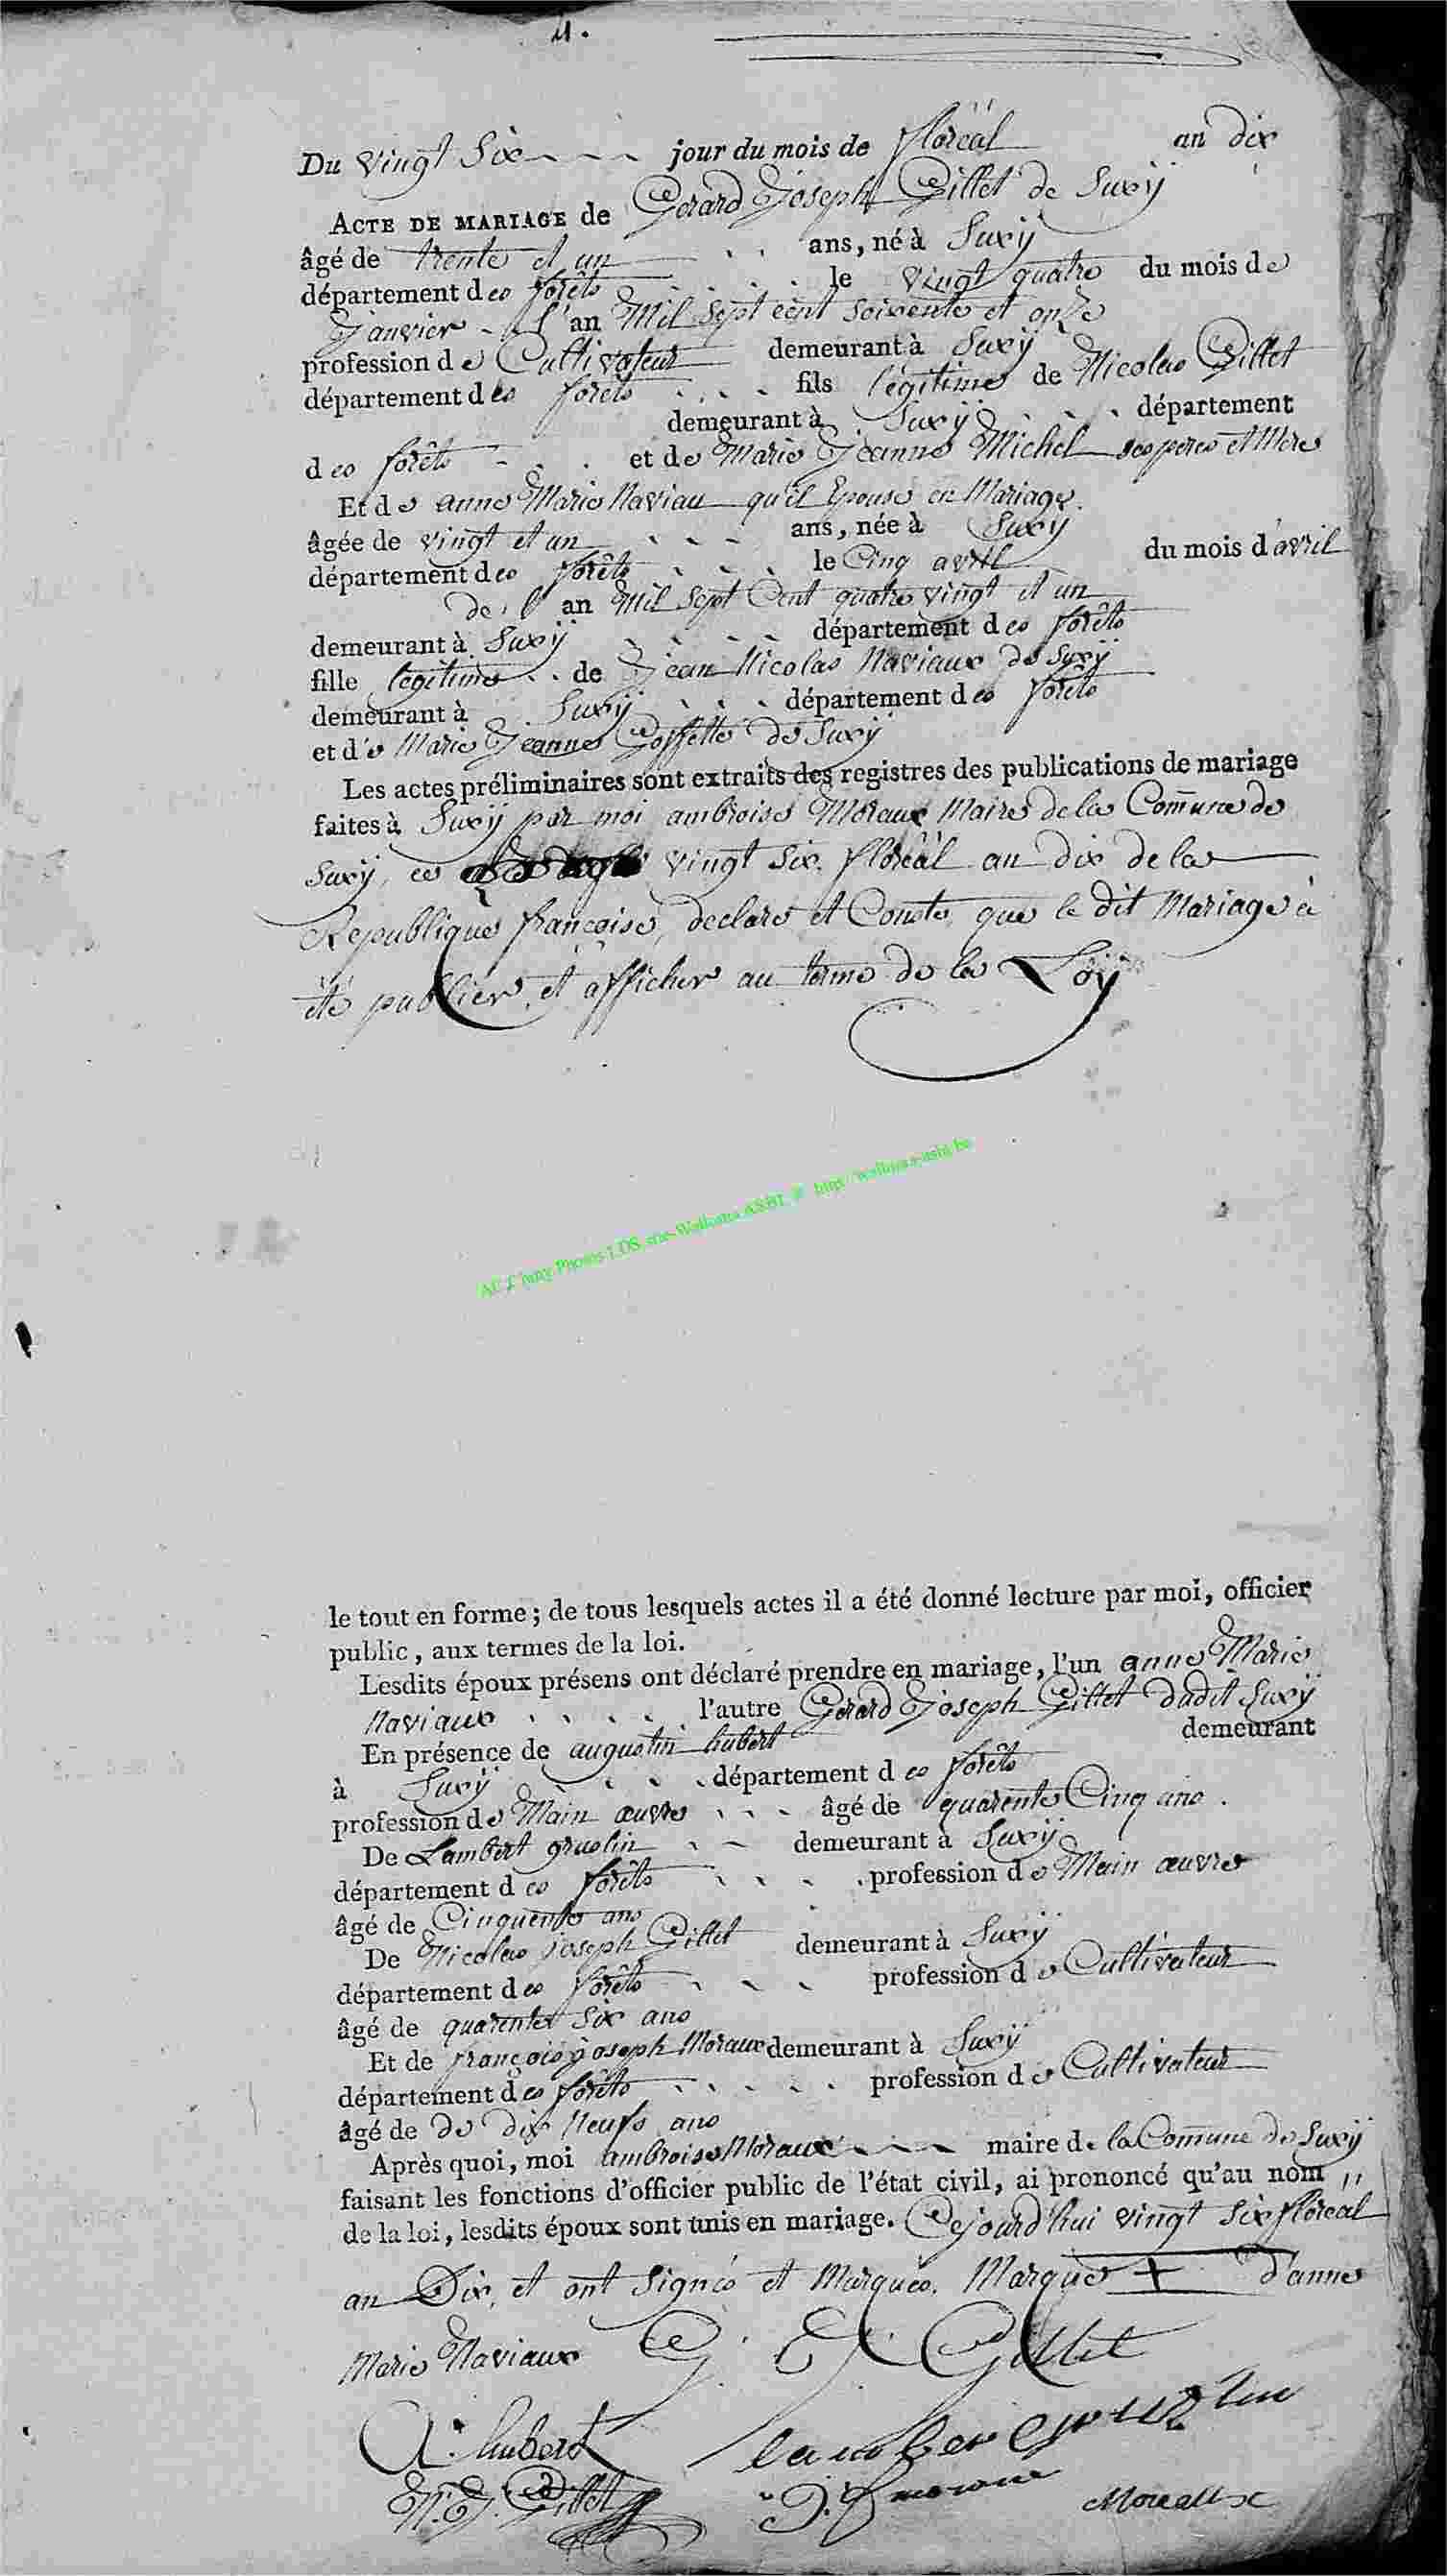 4.
Du vingt Six jour du mois de floréal an dix
ACTE DE MARIAGE de Gerard Joseph Gillet de Suxÿ
âgé de trente et un ans, né à Suxÿ
département des forêts le vingt quatre du mois de
Janvier l'an Mil Sept cent Soixente et onze
profession de Cultivateur demeurant à Suxÿ
département des forêts fils légitime de Nicolas Gillet
demeurant à Suxÿ département
des forêts et de Marie Jeanne Michel ses peres et Mere
Et de anne Marie Naviau qu'il Epouse en Mariage.
âgée de vingt et un ans, née à Suxÿ
département des forêts le Cinq avril du mois d'avril
de l'an Mil Sept Cent quatre vingt et un
demeurant à Suxÿ département des forêts
fille légitime de Jean Nicolas Naviaux de Suxÿ
demeurant à Suxÿ département des forêts
et de Marie Jeanne Goffette de Suxÿ
Les actes préliminaires sont extraits des registres des publications de mariage
faites à Suxÿ par moi ambroise Moraux Maire de la Com̄une de
Suxÿ, ce vingt Six floréal an dix de la
Republique françoise, declare et Conste que le dit Mariage à
été publier, et afficher au terme de la Loÿ
AC Chiny Photos LDS site Wallonia ASBL @ http://wallonia-asbl.be
le tout en forme ; de tous lesquels actes il a été donné lecture par moi, officier
public, aux termes de la loi.
Lesdits époux présens ont déclaré prendre en mariage, l'un anne Marie
Naviaux l'autre Gerard Joseph Gillet dudit Suxÿ
En présence de augustin hubert demeurant
à Suxÿ département des forêts
profession de Main œuvre âgé de quarente Cinq ans.
De Lambert gruslin demeurant à Suxÿ
département des forêts profession de Main œuvre
âgé de Cinquente ans
De Nicolas joseph Gillet demeurant à Suxÿ
département des forêts profession de Cultivateur
âgé de quarente Six ans
Et de françois joseph Moraux demeurant à Suxÿ
département des forêts profession de Cultivateur
âgé de de dix Neufs ans
Après quoi, moi ambroise Moraux maire de la Com̄une de Suxÿ
faisant les fonctions d'officier public de l'état civil, ai prononcé qu'au nom
de la loi, lesdits époux sont unis en mariage. Cejourd'hui vingt Six floréal
an Dix, et ont Signés et Marqués. Marque + d'anne
Marie Naviaux G. J. Gillet
A. hubert
N. J. Gillet Moraux